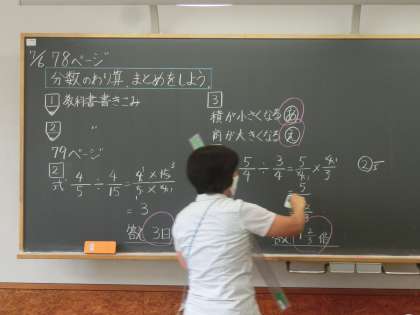 7/6 78ページ
分数のわり算、まとめをしよう。
1 教科書書きこみ
2 〃
79ページ
2
式 4/5 ÷ 4/15 = 4×15/5×4
= 3
答え 3日
3
積が小さくなる あ
商が大きくなる え
5/4 ÷ 3/4 = 5/4 × 4/3
= 5/
答え 1 2/3 倍